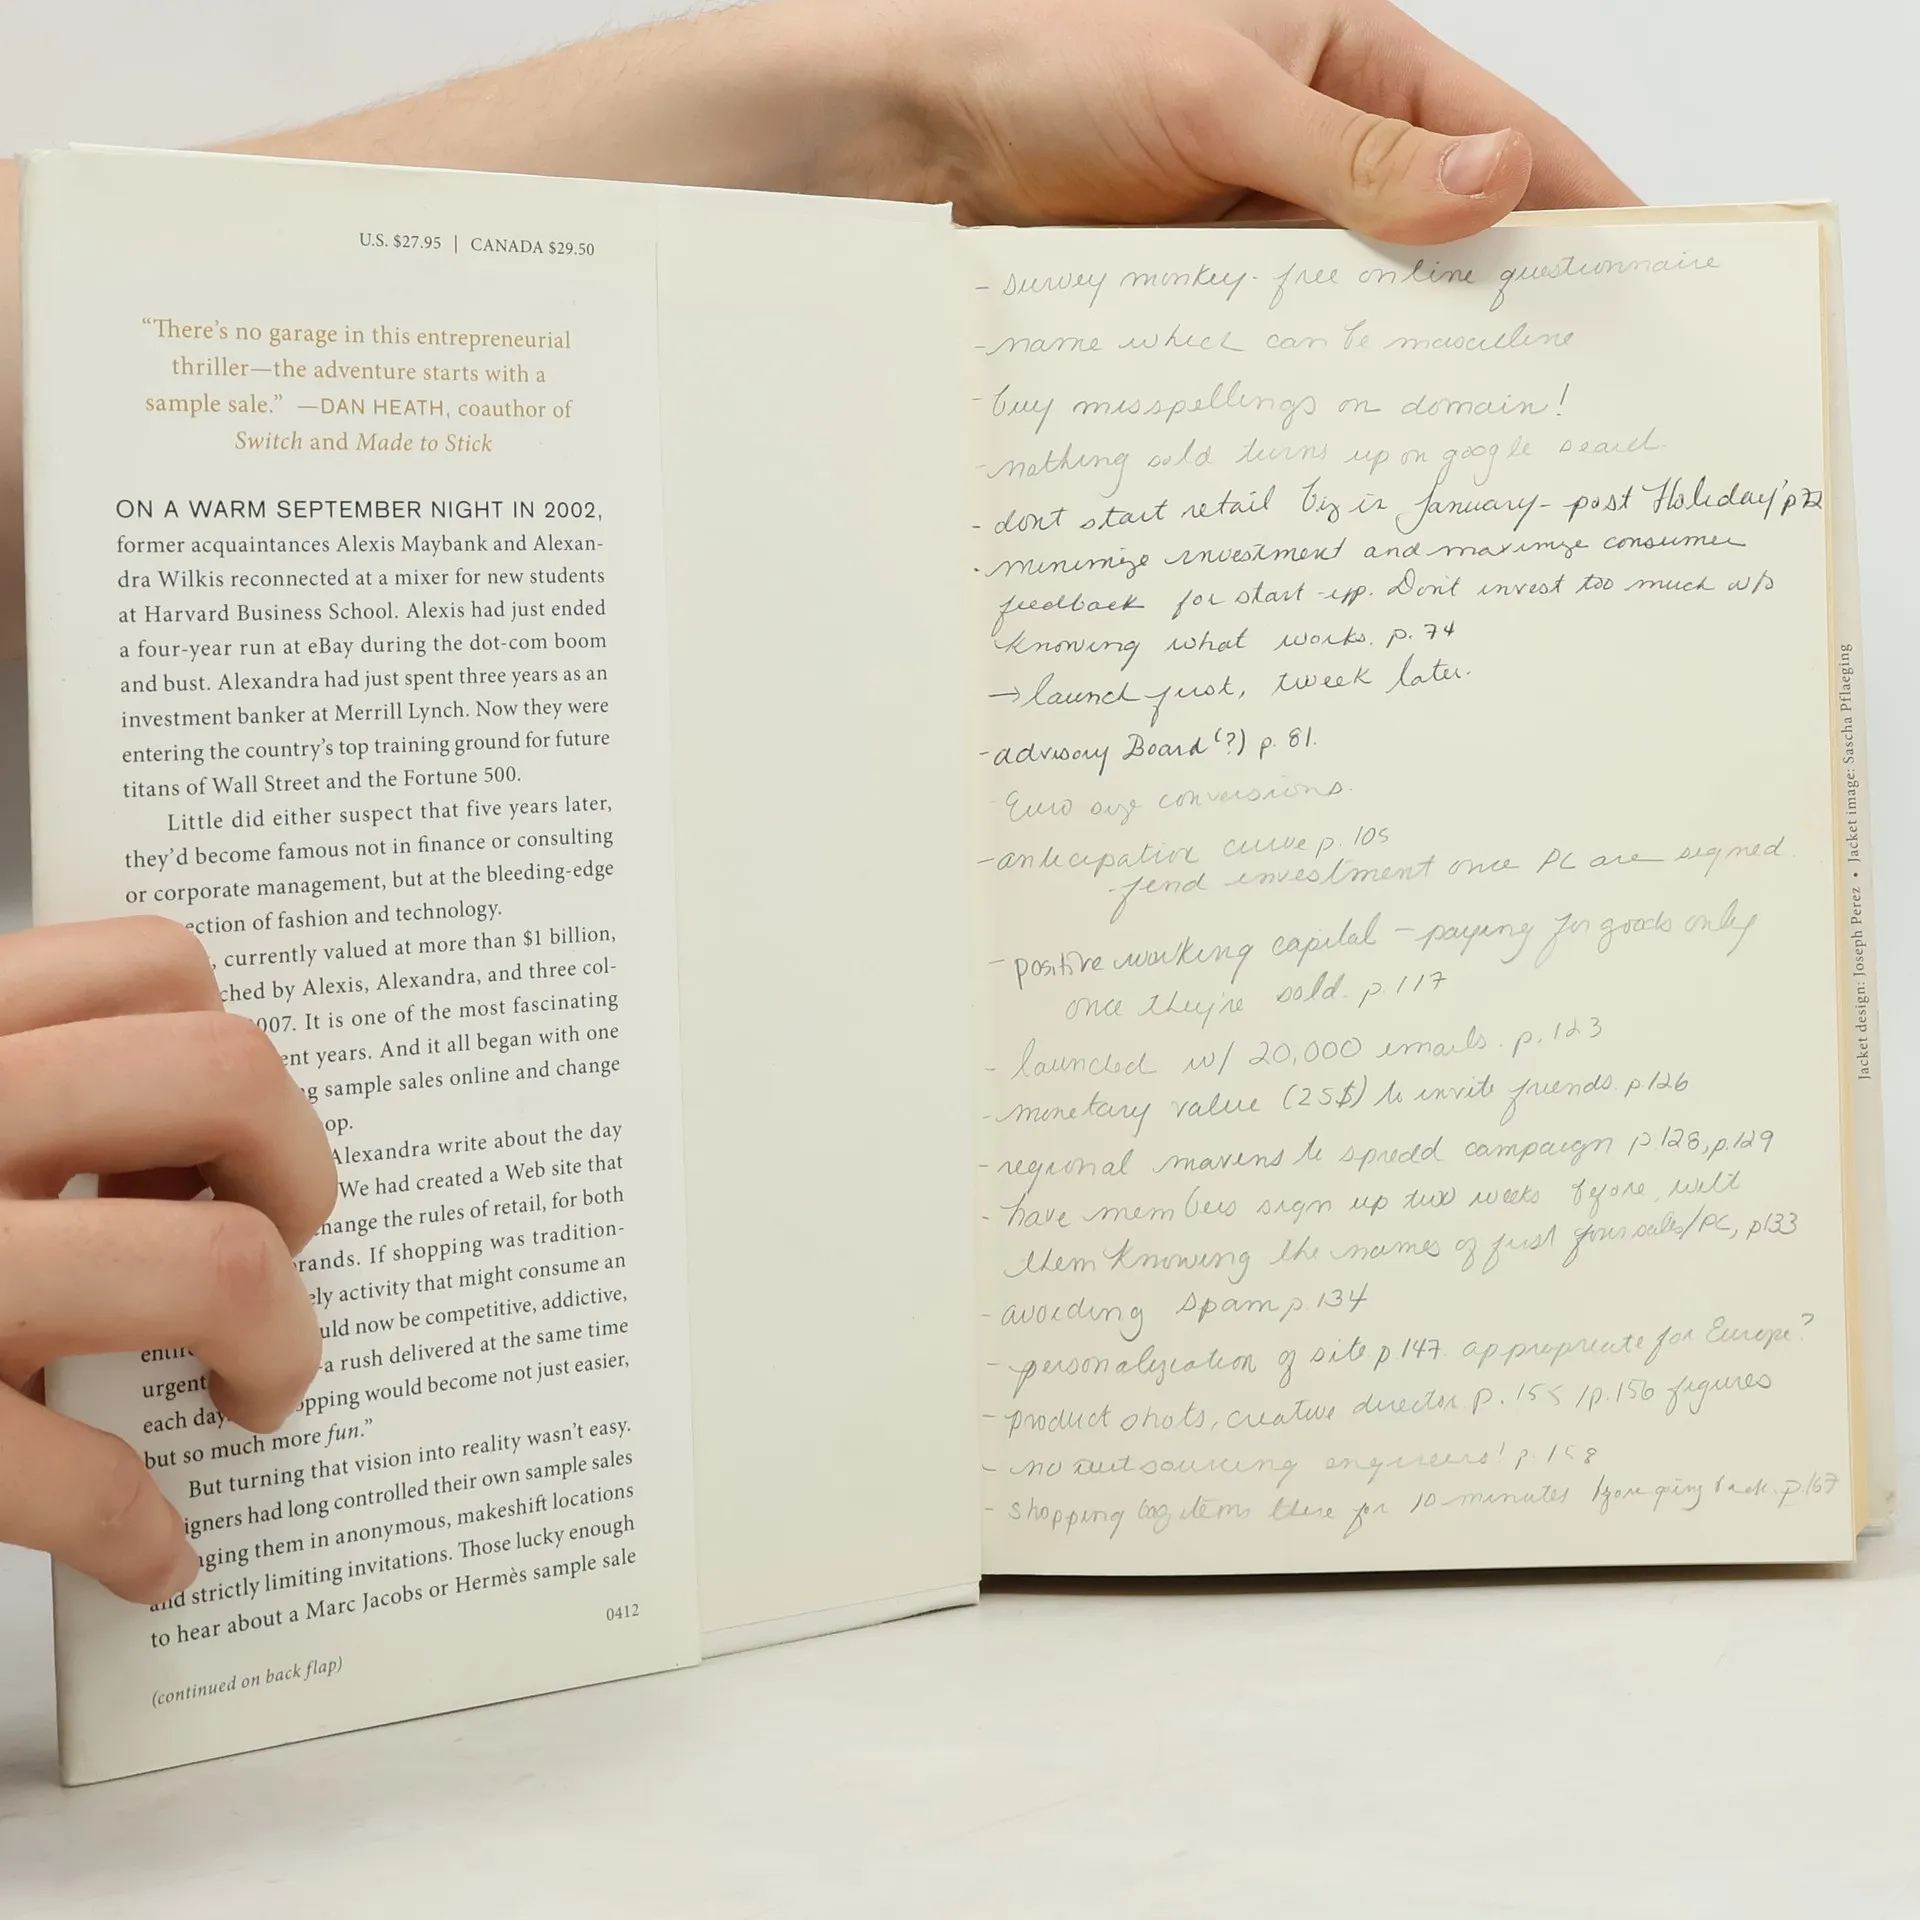 U.S. $27.95 | CANADA $29.50
“There’s no garage in this entrepreneurial
thriller—the adventure starts with a
sample sale.” —DAN HEATH, coauthor of
Switch and Made to Stick
ON A WARM SEPTEMBER NIGHT IN 2002,
former acquaintances Alexis Maybank and Alexan-
dra Wilkis reconnected at a mixer for new students
at Harvard Business School. Alexis had just ended
a four-year run at eBay during the dot-com boom
and bust. Alexandra had just spent three years as an
investment banker at Merrill Lynch. Now they were
entering the country’s top training ground for future
titans of Wall Street and the Fortune 500.
Little did either suspect that five years later,
they’d become famous not in finance or consulting
or corporate management, but at the bleeding-edge
ection of fashion and technology.
, currently valued at more than $1 billion,
ched by Alexis, Alexandra, and three col-
007. It is one of the most fascinating
ent years. And it all began with one
g sample sales online and change
op.
Alexandra write about the day
We had created a Web site that
hange the rules of retail, for both
rands. If shopping was tradition-
ely activity that might consume an
uld now be competitive, addictive,
a rush delivered at the same time
urgent opping would become not just easier,
each day
but so much more fun.”
But turning that vision into reality wasn’t easy.
igners had long controlled their own sample sales
ging them in anonymous, makeshift locations
and strictly limiting invitations. Those lucky enough
to hear about a Marc Jacobs or Hermès sample sale
0412
(continued on back flap)
- survey monkey - free online questionnaire
- name which can be masculine
- buy misspellings on domain!
- nothing sold turns up on google search
- dont start retail biz in January - post Holiday p72
- minimize investment and maximize consumer
feedback for start-up. Don't invest too much w/o
knowing what works. p. 74
→ launch first, tweek later.
- advisory Board (?) p. 81.
- Euro size conversions.
- anticipative curve p. 105
- investment once PC are signed
- positive working capital - paying for goods only
once they're sold. p. 117
- launched w/ 20,000 emails. p. 123
- monetary value (25$) to invite friends. p.126
- regional mavens to spredd campaign p.128, p.129
- have members sign up two weeks before, with
them knowing the names of first four sales/PC, p133
- avoiding spam p. 134
- personalization of site. p.147. appropriate for Europe?
- product shots, creative director p. 155 /p.156 figures
- no outsourcing engineers! p. 158
- shopping bag items there for 10 minutes before going back. p.167
Jacket design: Joseph Perez • Jacket image: Sascha Pflaeging